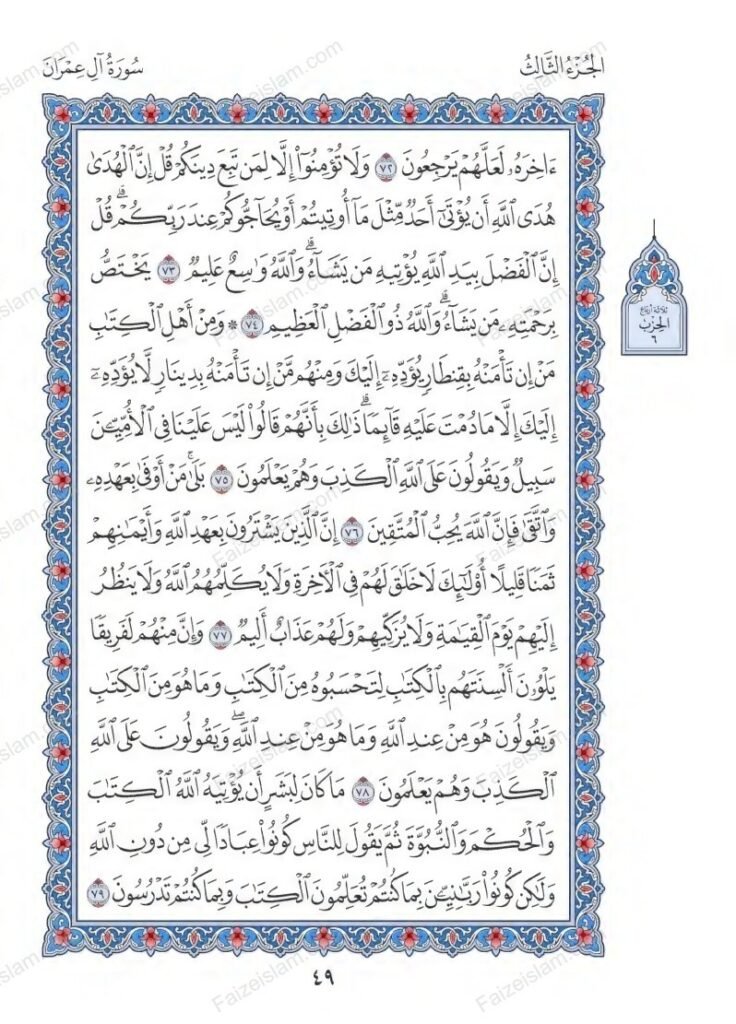 الجُزْءُ الثَّالِثُ
سُورَةُ آلِ عِمْرَانَ
ءَاخِرَهُۥ لَعَلَّهُمْ يَرْجِعُونَ ٧٢ وَلَا تُؤْمِنُوٓا۟ إِلَّا لِمَن تَبِعَ دِينَكُمْ قُلْ إِنَّ ٱلْهُدَىٰ
هُدَى ٱللَّهِ أَن يُؤْتَىٰٓ أَحَدٌ مِّثْلَ مَآ أُوتِيتُمْ أَوْ يُحَآجُّوكُمْ عِندَ رَبِّكُمْ ۗ قُلْ
إِنَّ ٱلْفَضْلَ بِيَدِ ٱللَّهِ يُؤْتِيهِ مَن يَشَآءُ ۗ وَٱللَّهُ وَٰسِعٌ عَلِيمٌ ٧٣ يَخْتَصُّ
بِرَحْمَتِهِۦ مَن يَشَآءُ ۗ وَٱللَّهُ ذُو ٱلْفَضْلِ ٱلْعَظِيمِ ٧٤ ۞ وَمِنْ أَهْلِ ٱلْكِتَٰبِ
مَنْ إِن تَأْمَنْهُ بِقِنطَارٍ يُؤَدِّهِۦٓ إِلَيْكَ وَمِنْهُم مَّنْ إِن تَأْمَنْهُ بِدِينَارٍ لَّا يُؤَدِّهِۦٓ
إِلَيْكَ إِلَّا مَا دُمْتَ عَلَيْهِ قَآئِمًا ۗ ذَٰلِكَ بِأَنَّهُمْ قَالُوا۟ لَيْسَ عَلَيْنَا فِى ٱلْأُمِّيِّۦنَ
سَبِيلٌ وَيَقُولُونَ عَلَى ٱللَّهِ ٱلْكَذِبَ وَهُمْ يَعْلَمُونَ ٧٥ بَلَىٰ ۚ مَنْ أَوْفَىٰ بِعَهْدِهِۦ
وَٱتَّقَىٰ فَإِنَّ ٱللَّهَ يُحِبُّ ٱلْمُتَّقِينَ ٧٦ إِنَّ ٱلَّذِينَ يَشْتَرُونَ بِعَهْدِ ٱللَّهِ وَأَيْمَٰنِهِمْ
ثَمَنًا قَلِيلًا أُو۟لَٰٓئِكَ لَا خَلَٰقَ لَهُمْ فِى ٱلْءَاخِرَةِ وَلَا يُكَلِّمُهُمُ ٱللَّهُ وَلَا يَنظُرُ
إِلَيْهِمْ يَوْمَ ٱلْقِيَٰمَةِ وَلَا يُزَكِّيهِمْ وَلَهُمْ عَذَابٌ أَلِيمٌ ٧٧ وَإِنَّ مِنْهُمْ لَفَرِيقًا
يَلْوُۥنَ أَلْسِنَتَهُم بِٱلْكِتَٰبِ لِتَحْسَبُوهُ مِنَ ٱلْكِتَٰبِ وَمَا هُوَ مِنَ ٱلْكِتَٰبِ
وَيَقُولُونَ هُوَ مِنْ عِندِ ٱللَّهِ وَمَا هُوَ مِنْ عِندِ ٱللَّهِ ۖ وَيَقُولُونَ عَلَى ٱللَّهِ
ٱلْكَذِبَ وَهُمْ يَعْلَمُونَ ٧٨ مَا كَانَ لِبَشَرٍ أَن يُؤْتِيَهُ ٱللَّهُ ٱلْكِتَٰبَ
وَٱلْحُكْمَ وَٱلنُّبُوَّةَ ثُمَّ يَقُولَ لِلنَّاسِ كُونُوا۟ عِبَادًا لِّى مِن دُونِ ٱللَّهِ
وَلَٰكِن كُونُوا۟ رَبَّٰنِيِّۦنَ بِمَا كُنتُمْ تُعَلِّمُونَ ٱلْكِتَٰبَ وَبِمَا كُنتُمْ تَدْرُسُونَ ٧٩
ثلاثة أرباع
الحزب
٦
٤٩
Faizeislam.com